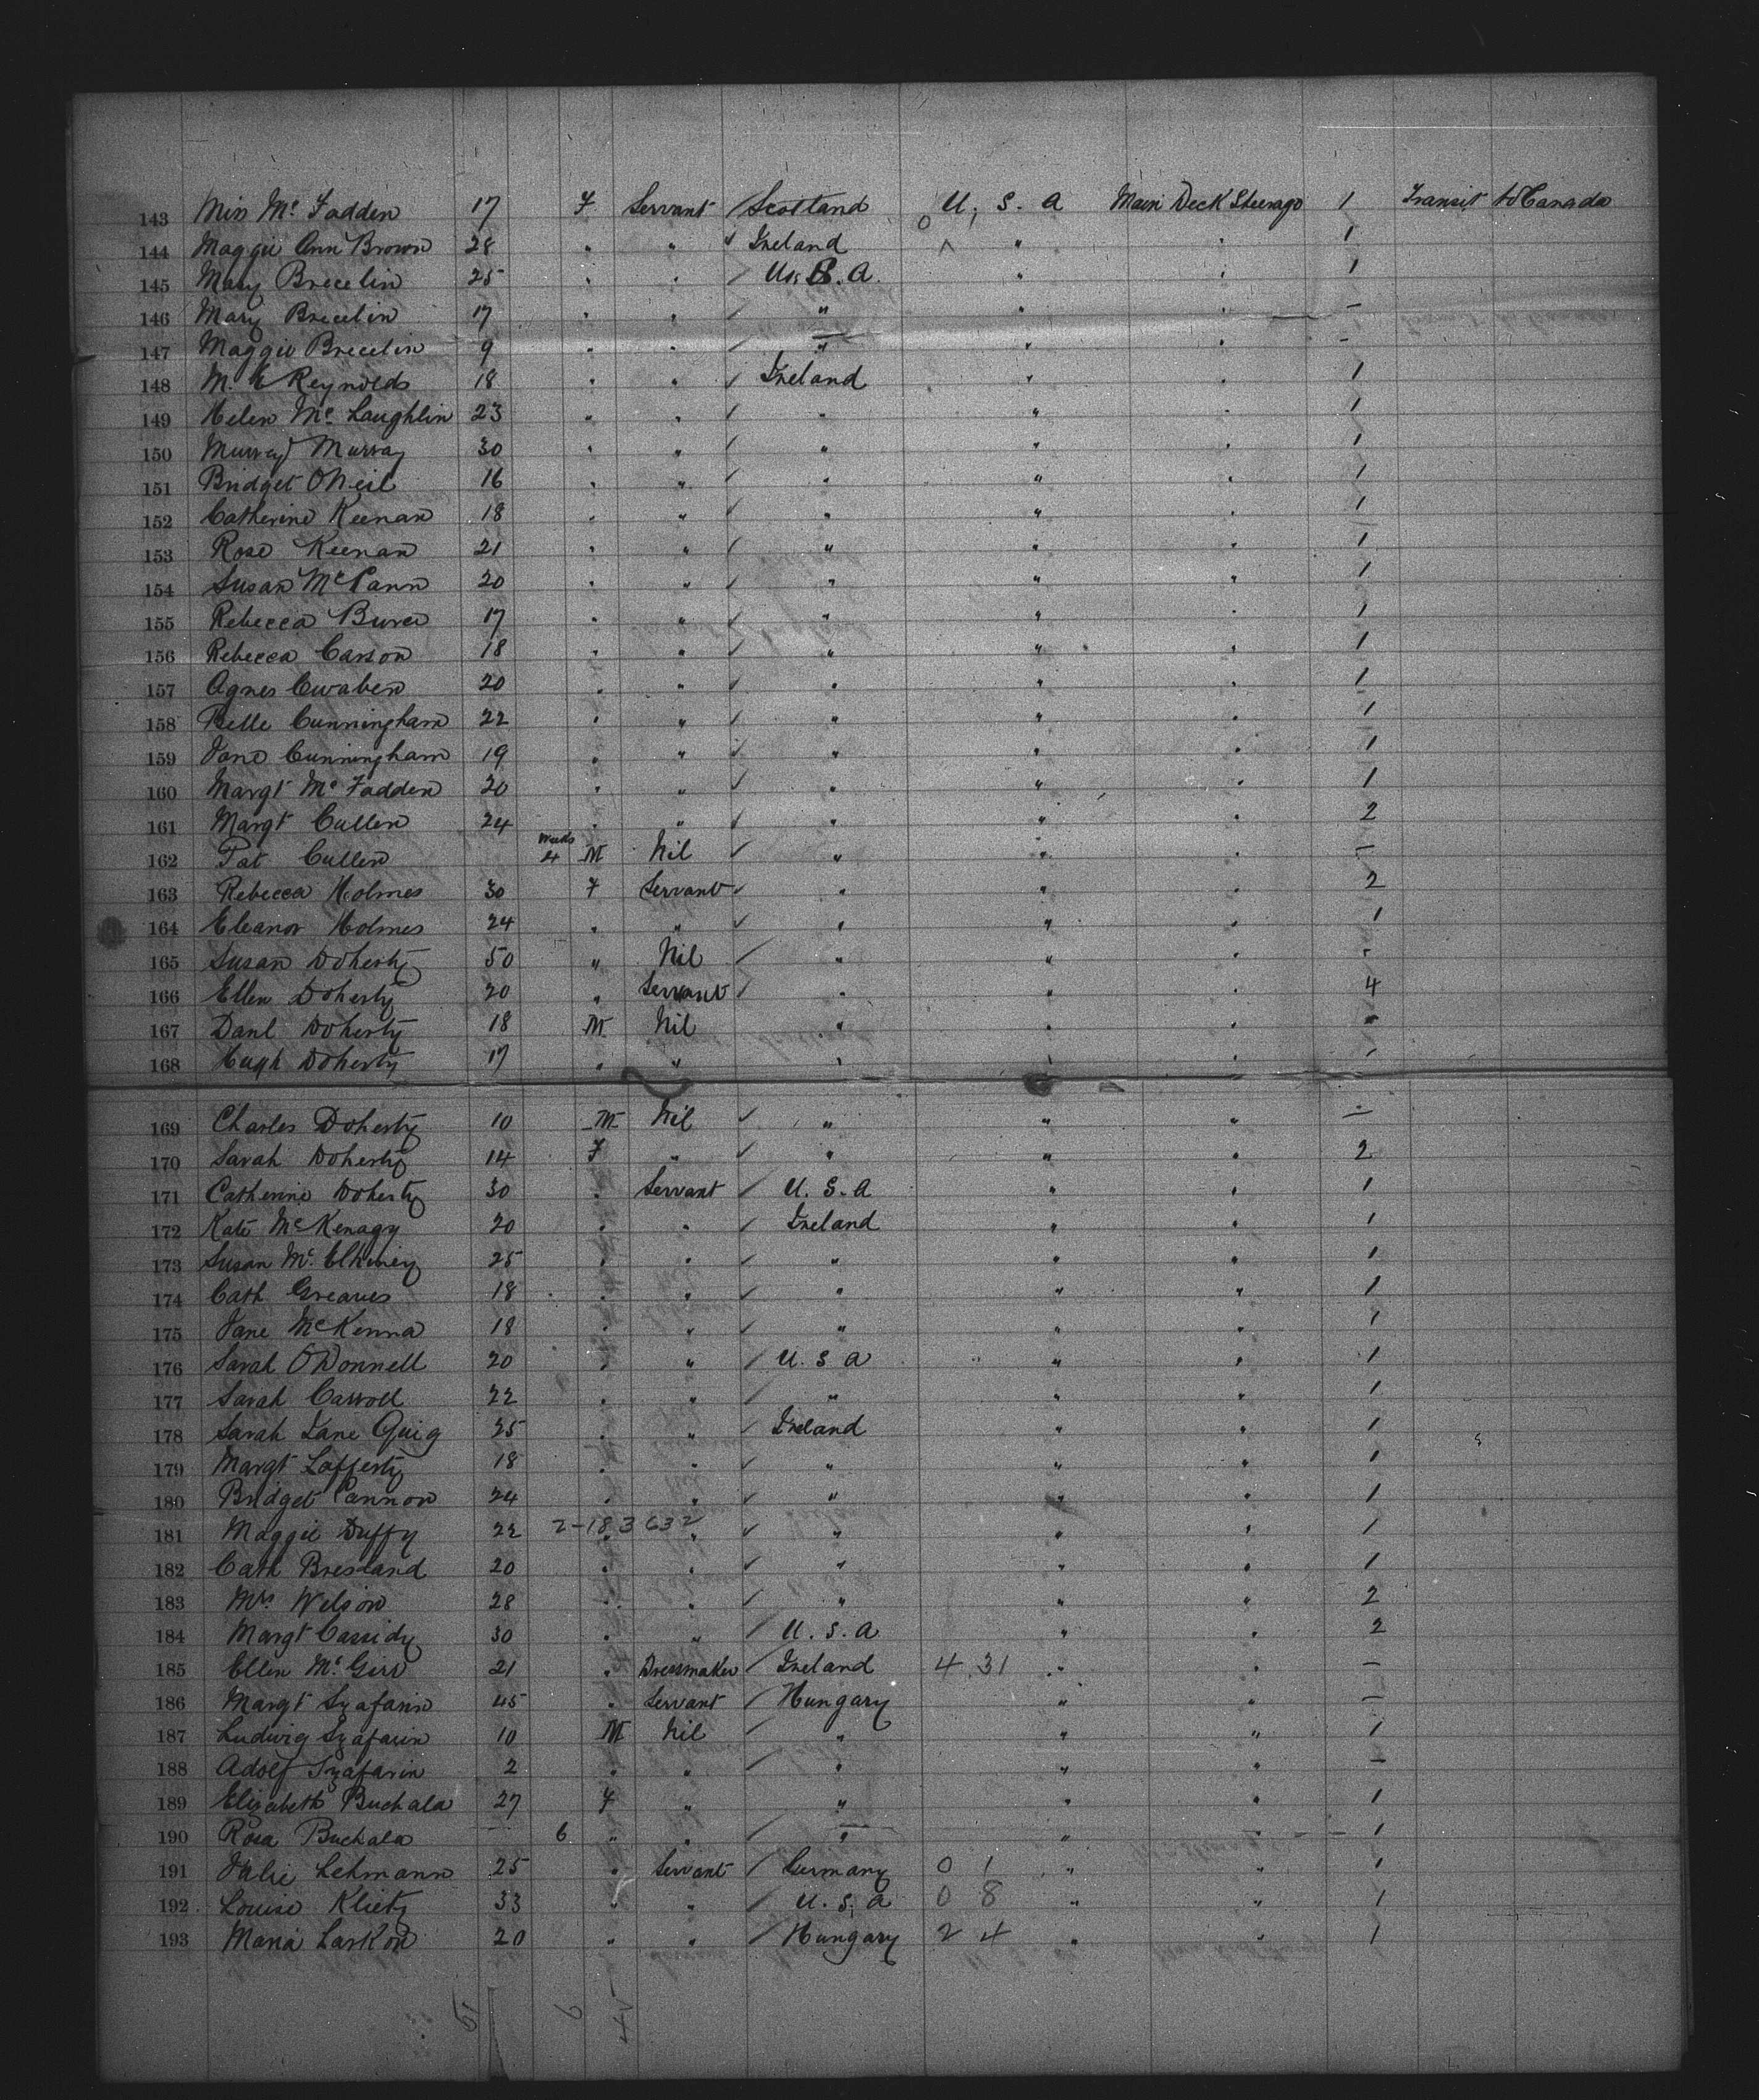 143 Miss Mc Fadden 17 F Servant / Scotland U. S. A Main Deck Steerage 1 Transit to Canada
144 Maggie Ann Brown 28 " " ✓ Ireland " " 1
145 Mary Brecelin 25 " " / U. S. A. " " 1
146 Mary Brecelin 17 " " / " " " –
147 Maggie Brecelin 9 " " / " " " –
148 M. Reynolds 18 " " ✓ Ireland " " 1
149 Helen Mc Laughlin 23 " " / " " " 1
150 Murray 30 " " / " " " 1
151 Bridget O'Neil 16 " " ✓ " " " 1
152 Catherine Keenan 18 " " ✓ " " " 1
153 Rose Keenan 21 " " / " " " 1
154 Susan McCann 20 " " ✓ " " " 1
155 Rebecca 17 " " ✓ " " " 1
156 Rebecca Carson 18 " " ✓ " " " 1
157 Agnes 20 " " ✓ " " " 1
158 Belle Cunningham 22 " " ✓ " " " 1
159 Jane Cunningham 19 " " ✓ " " " 1
160 Margt Mc Fadden 20 " " ✓ " " " 1
161 Margt Cullen 24 " " ✓ " " " 2
162 Pat Cullen Weeks 4 M Nil ✓ " " " –
163 Rebecca Holmes 30 F Servant ✓ " " " 2
164 Eleanor Holmes 24 " " ✓ " " " 1
165 Susan Doherty 50 " Nil / " " " -
166 Ellen Doherty 20 " Servant / " " " 4
167 Danl Doherty 18 M Nil " " " -
168 Hugh Doherty 17 " " " " " -
169 Charles Doherty 10 M Nil ✓ " " " –
170 Sarah Doherty 14 F " ✓ " " " 2
171 Catherine Doherty 30 " Servant ✓ U. S. A " " 1
172 Kate McKenagy 20 " " / Ireland " " 1
173 Susan Mc Elhiney 25 " " ✓ " " " 1
174 Cath Greaves 18 " " ✓ " " " 1
175 Jane McKenna 18 " " ✓ " " " 1
176 Sarah O'Donnell 20 " " / U. S A " " 1
177 Sarah Carroll 22 " " / " " " 1
178 Sarah Jane Quig 25 " " ✓ Ireland " " 1
179 Margt Lafferty 18 " " ✓ " " " 1
180 Bridget Cannon 24 " " ✓ " " " 1
181 Maggie Duffy 22 2-183632 " " ✓ " " " 1
182 Cath Bresland 20 " " ✓ " " " 1
183 Mrs Wilson 28 " " / " " " 2
184 Margt Cassidy 30 " " / U. S. A " " 2
185 Ellen 21 " Dressmaker / Ireland 4 31 " " –
186 Margt Szafarin 45 " Servant / Hungary " " –
187 Ludwig Szafarin 10 M Nil / " " " 1
188 Adolf Szafarin 2 " " / " " " –
189 Elizabeth Buchala 27 F " " " " 1
190 Rosa Buchala – 6 " " / " " " 1
191 Julie Lehmann 25 " Servant / Germany 0 1 " " 1
192 Louise Klietz 33 " " / U. S. A 0 8 " " 1
193 Maria Laskon 20 " " / Hungary 2 4 " " 1